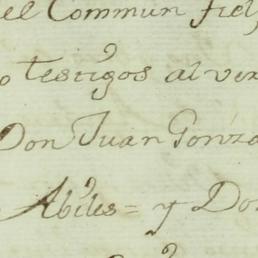 el Commun fiel
o testigos al ver
Don Juan Gonza
Abiles = y Do